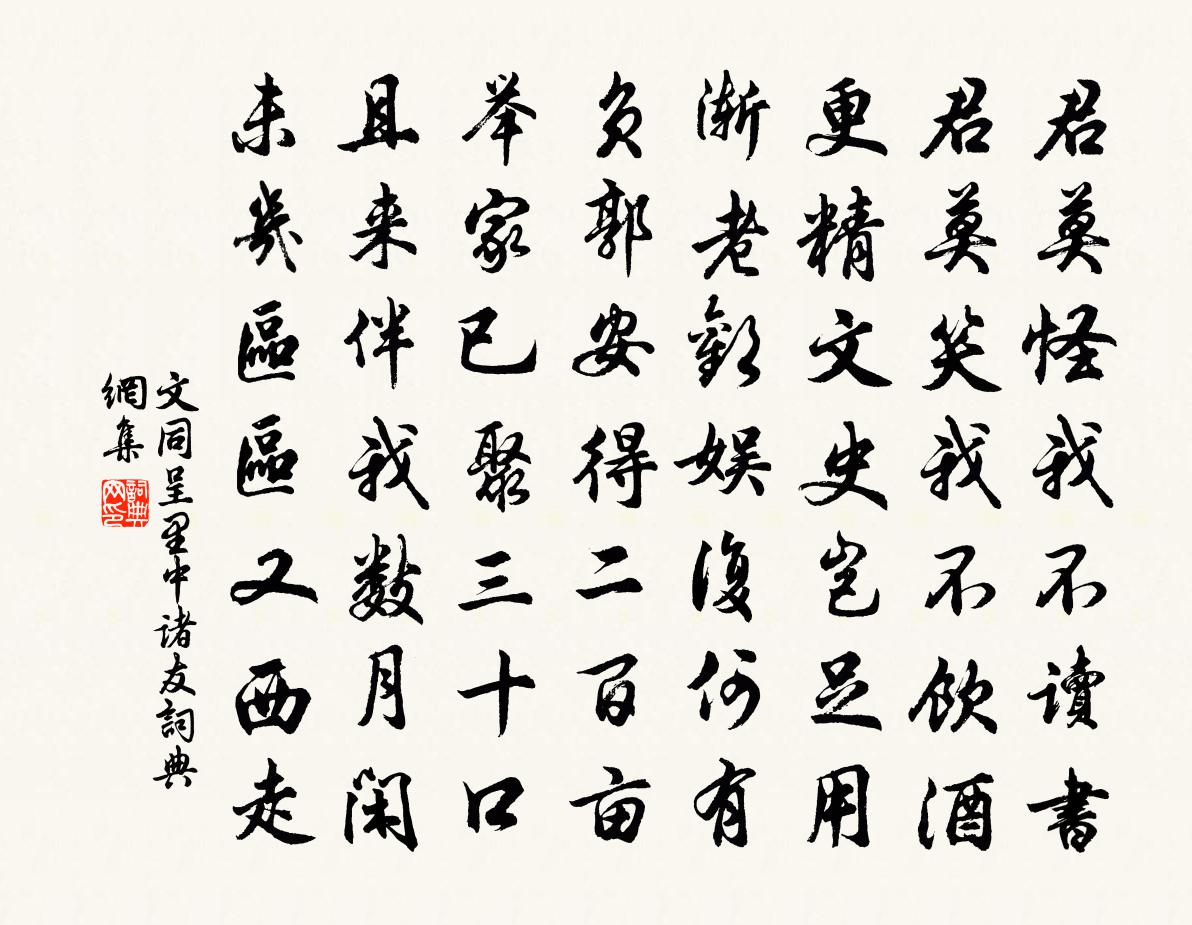 君莫怪我不讀書
君莫笑我不飲酒
更精文史豈足用
漸老歡娱復何有
負郭安得二百亩
举家已聚三十口
且来伴我數月闲
未幾區區又西走
文同呈里中諸友詞典
網集
詞典網印